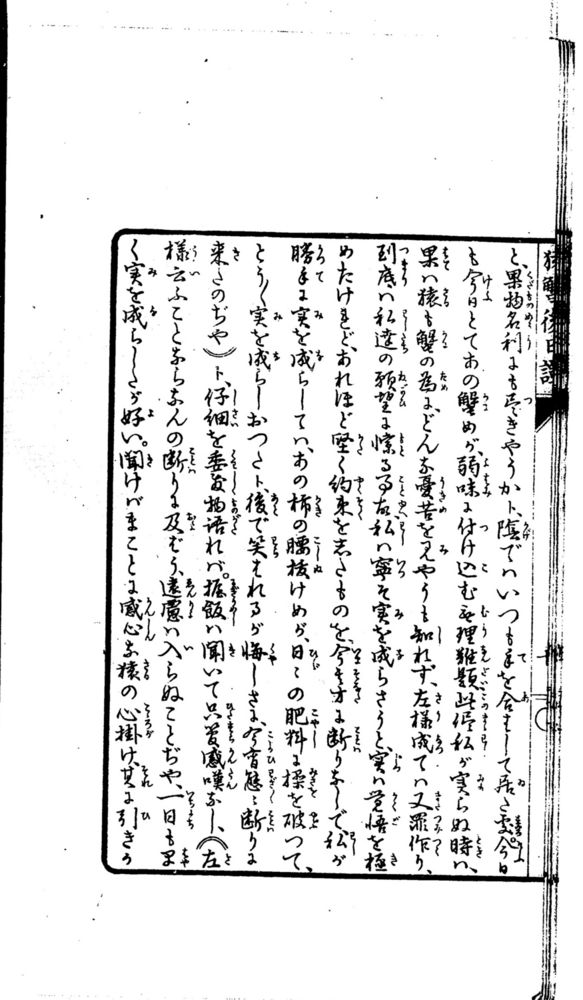 猿蟹後日譚
と、果物名利にも尽きやうかト、陰でハいつも手を合せして居た処。今日
も今日とてあの蟹めが、弱味に付け込む無理難題此侭私が実らぬ時ハ、
果ハ猿も蟹の為に、どんな憂苦を見やうも知れず、左様成てハ又罪作り、
到底ハ私達の願望に悖る故私ハ寧そ実を成らさうと、実ハ覚悟を極
めたけれど、あれほど堅く約束を志たものを、今其方に断りなしで、私が
勝手に実を成らしてハ、あの柿の腰抜けめが、日々の肥料に操を破つて、
とう〳〵実を成らしおつたト、後で笑はれるが悔しさに、今宵態々断りに
来たのぢや）ト、仔細を委敷物語れバ。握飯ハ聞いて只管感嘆なし、（左
様云ふことならなんの断りに及ばう、遠慮ハ入らぬことぢや、一日も早
く実を成らしたが好い。聞けバまことに感心な猿の心掛け、其に引きか